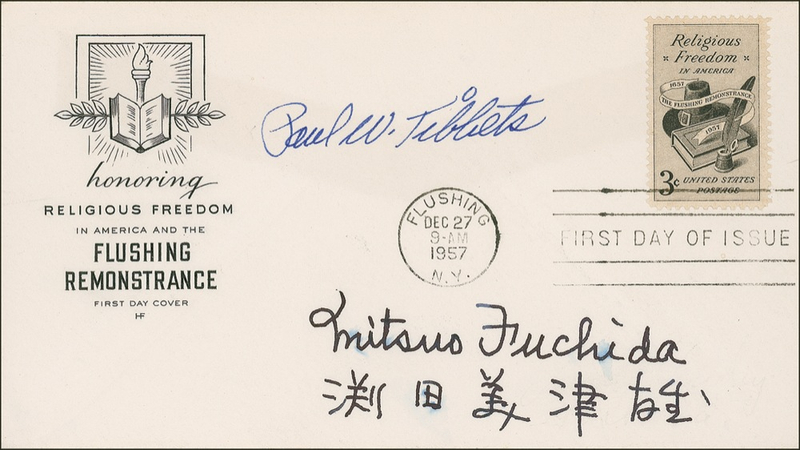 honoring
RELIGIOUS FREEDOM
IN AMERICA AND THE
FLUSHING
REMONSTRANCE
FIRST DAY COVER
HF
Paul W. Tibbets
Religious
Freedom
IN AMERICA
1657
THE FLUSHING REMONSTRANCE
1957
3¢ UNITED STATES
POSTAGE
FLUSHING
DEC 27
9-AM
1957
N.Y.
FIRST DAY OF ISSUE
Mitsuo Fuchida
渕田美津雄